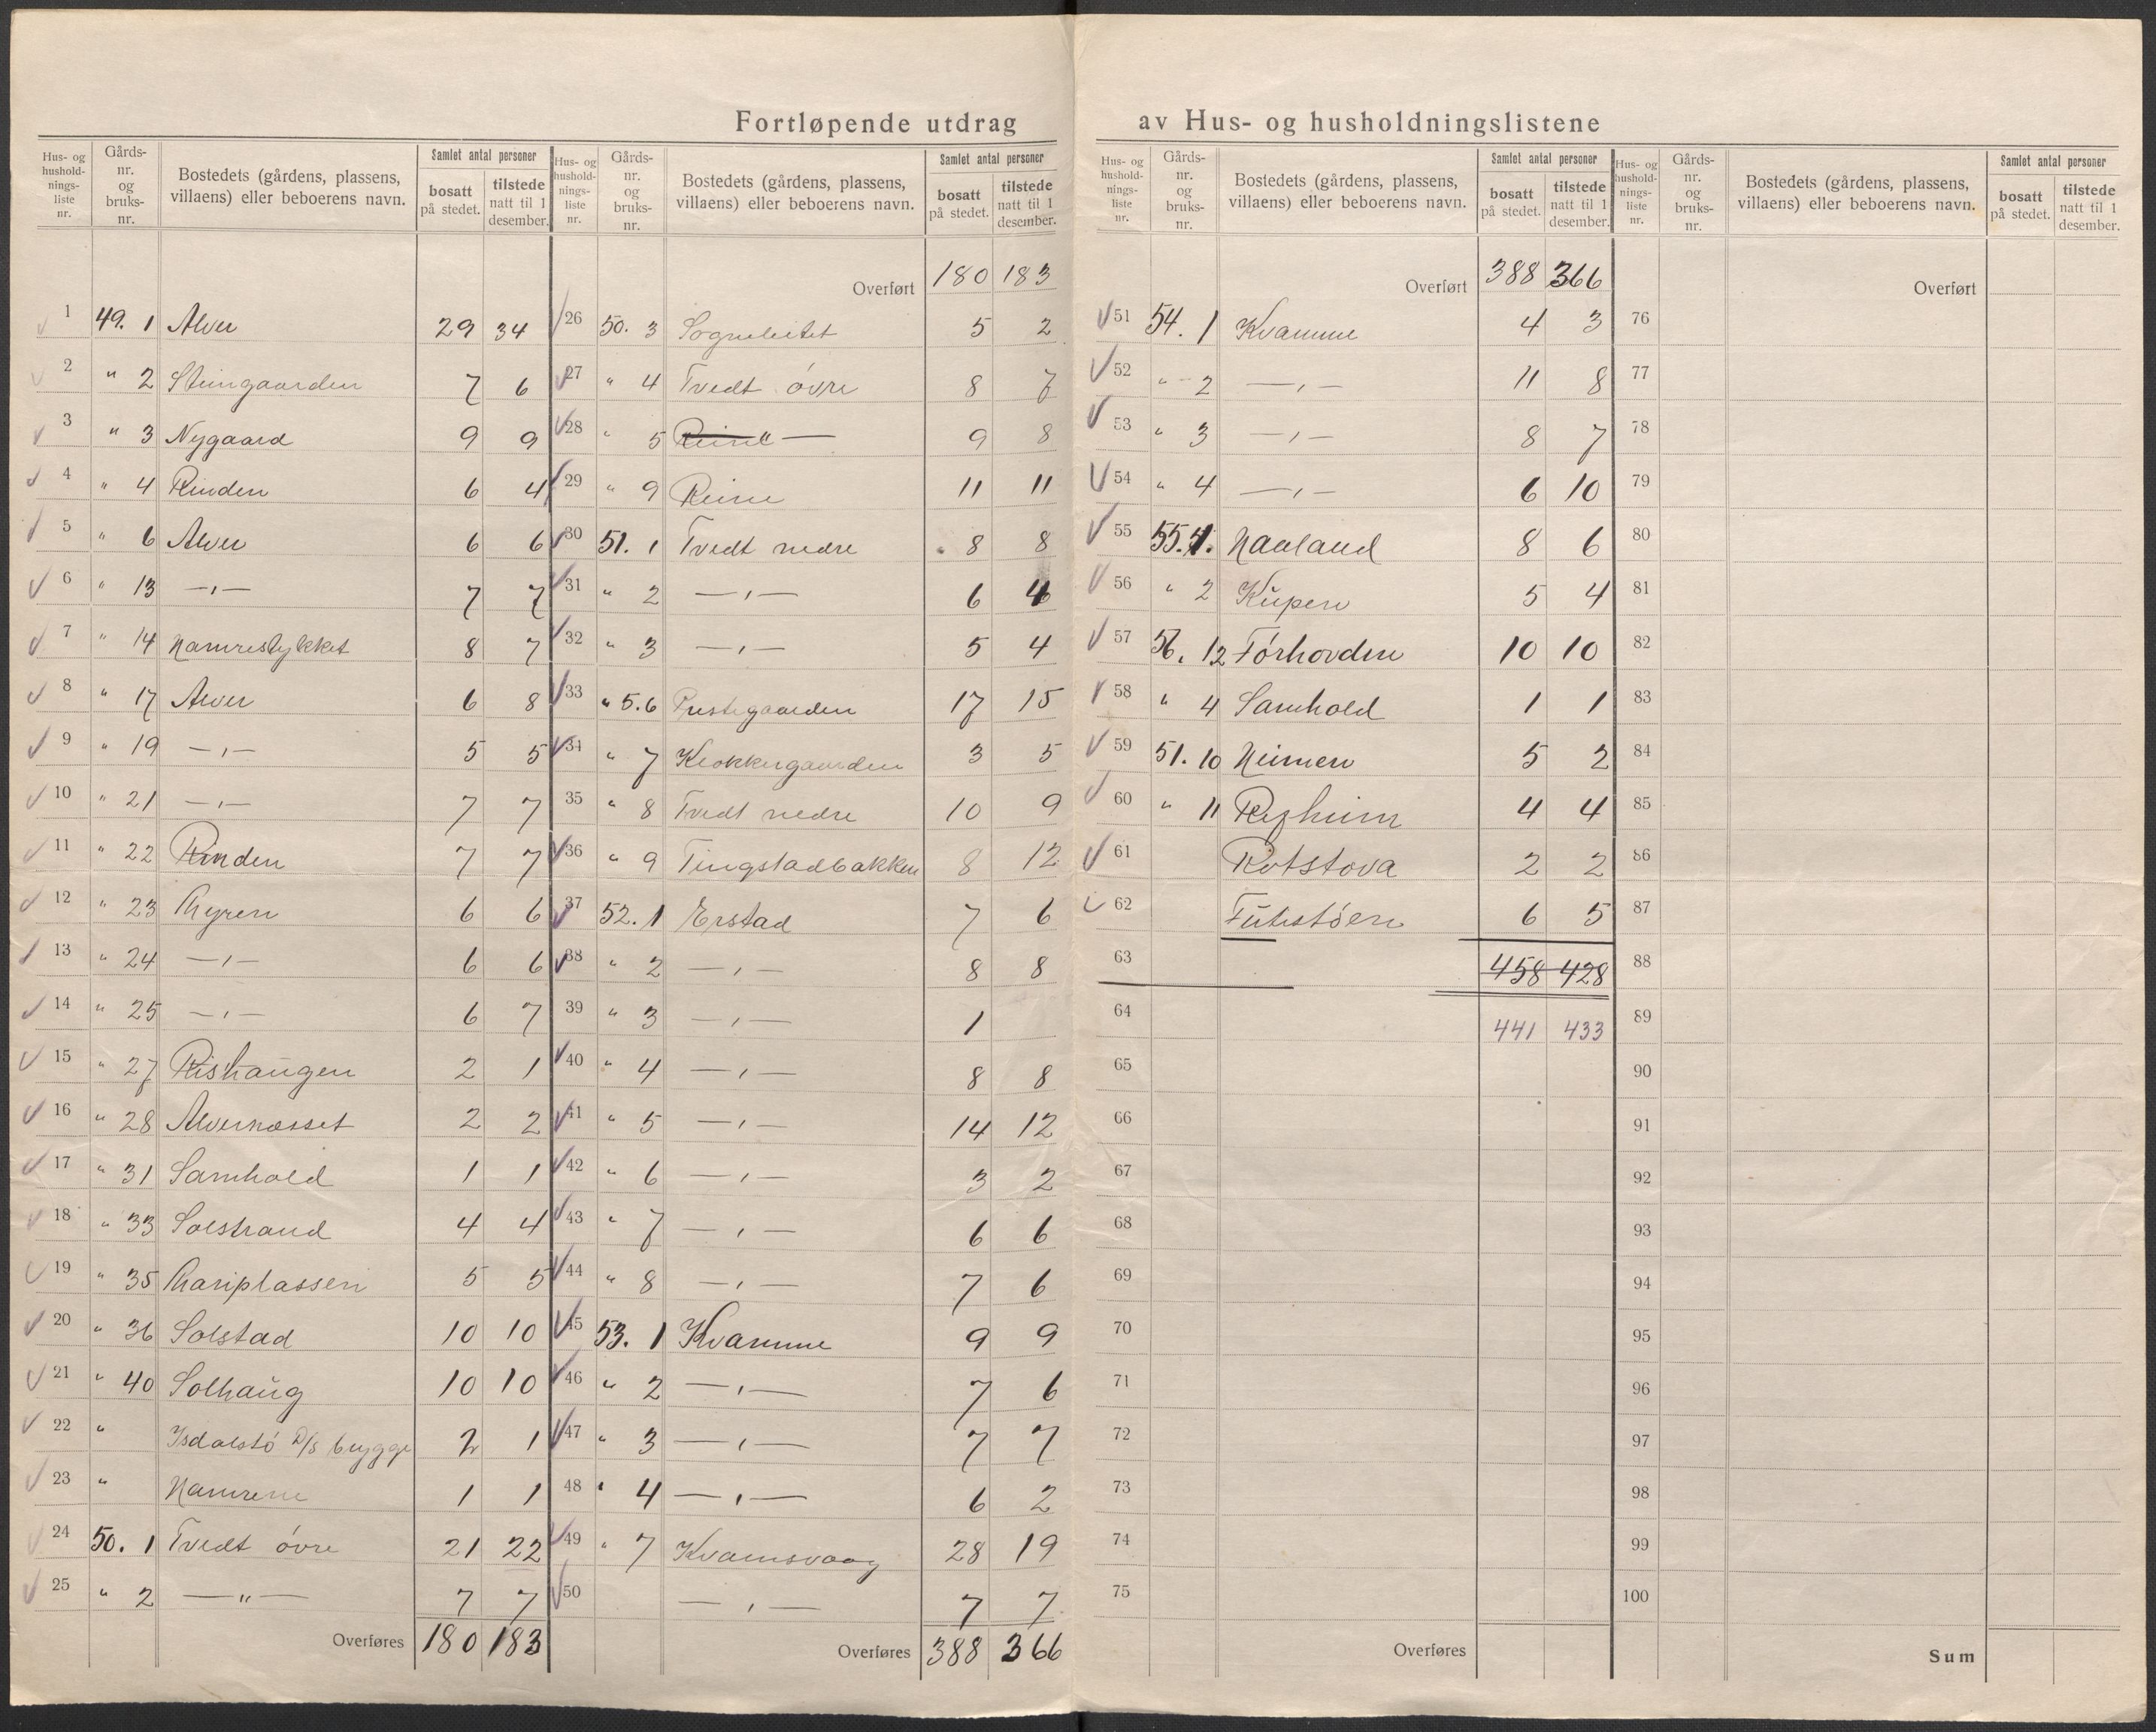 Fortløpende utdrag av Hus- og husholdningslistene
Hus- og hushold- nings- liste nr. | Gårds- nr. og bruks- nr. | Bostedets (gårdens, plassens, villaens) eller beboerens navn. | Samlet antal personer | bosatt på stedet. | tilstede natt til 1 desember.
1 49. 1 Alver 29 34
2 " 2 Steingaarden 7 6
3 " 3 Nygaard 9 9
4 " 4 Rinden 6 4
5 " 6 Alver 6 6
6 " 13 —"— 7 7
7 " 14 Hamrestykket 8 7
8 " 17 Alver 6 8
9 " 19 —"— 5 5
10 " 21 —"— 7 7
11 " 22 Rinden 7 7
12 " 23 Myren 6 6
13 " 24 —"— 6 6
14 " 25 —"— 6 7
15 " 27 Rishaugen 2 1
16 " 28 Alvernesset 2 2
17 " 31 Samhold 1 1
18 " 33 Solstrand 4 4
19 " 35 Mariplassen 5 5
20 " 36 Solstad 10 10
21 " 40 Solhaug 10 10
22 " Isdalstø D/S brygge 2 1
23 " Hamrene 1 1
24 50. 1 Tvedt øvre 21 22
25 " 2 —"— 7 7
Overføres 180 183
Hus- og hushold- nings- liste nr. | Gårds- nr. og bruks- nr. | Bostedets (gårdens, plassens, villaens) eller beboerens navn. | Samlet antal personer | bosatt på stedet. | tilstede natt til 1 desember.
Overført 180 183
26 50. 3 Sogneleitet 5 2
27 " 4 Tvedt øvre 8 7
28 " 5 —"— 9 8
29 " 9 Reine 11 11
30 51. 1 Tvedt nedre 8 8
31 " 2 —"— 6
32 " 3 —"— 5 4
33 " 5.6 Prestegaarden 17 15
34 " 7 Klokkergaarden 3 5
35 " 8 Tvedt nedre 10 9
36 " 9 Tingstadbakken 8 12
37 52. 1 Erstad 7 6
38 " 2 —"— 8 8
39 " 3 —"— 1
40 " 4 —"— 8 8
41 " 5 —"— 14 12
42 " 6 —"— 3 2
43 " 7 —"— 6 6
44 " 8 —"— 7 6
45 53. 1 Kvamme 9 9
46 " 2 —"— 7 6
47 " 3 —"— 7 7
48 " 4 —"— 6 2
49 " 7 Kvamsvaag 28 19
50 —"— 7 7
Overføres 388 366
Hus- og hushold- nings- liste nr. | Gårds- nr. og bruks- nr. | Bostedets (gårdens, plassens, villaens) eller beboerens navn. | Samlet antal personer | bosatt på stedet. | tilstede natt til 1 desember.
Overført 388 366
51 54. 1 Kvamme 4 3
52 " 2 —"— 11 8
53 " 3 —"— 8 7
54 " 4 —"— 6 10
55 55. 1. Haaland 8 6
56 " 2 Kupen 5 4
57 56. 12 Førhovden 10 10
58 " 4 Samhold 1 1
59 51. 10 Heimen 5 2
60 " 11 4 4
61 Rotstova 2 2
62 6 5
63 458 428
64 441 433
65
66
67
68
69
70
71
72
73
74
75
Overføres
Hus- og hushold- nings- liste nr. | Gårds- nr. og bruks- nr. | Bostedets (gårdens, plassens, villaens) eller beboerens navn. | Samlet antal personer | bosatt på stedet. | tilstede natt til 1 desember.
Overført
76
77
78
79
80
81
82
83
84
85
86
87
88
89
90
91
92
93
94
95
96
97
98
99
100
Sum